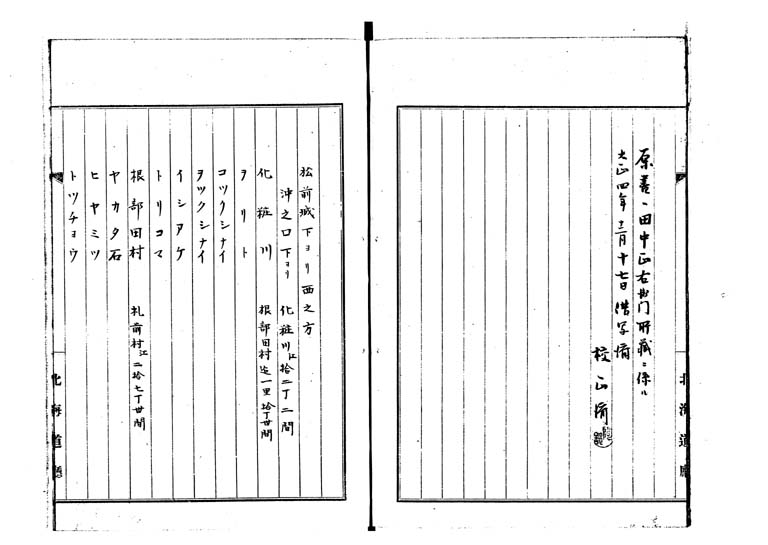 原書ハ田中正右衛門所蔵ニ係ル
大正四年十二月十七日借写済
校正済
北海道庁
松前城下ヨリ西之方
沖之口下ヨリ 化粧川江拾二丁二間
化粧川 根部田村迄一里拾丁廿間
ヲリト
コツクシナイ
ヲツクシナイ
イシアケ
トリコマ
根部田村 札前村江二拾七丁廿間
ヤカタ石
ヒヤミツ
トツチヨウ
北海道庁